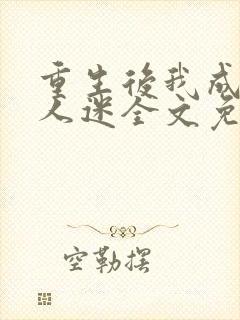 重生後我成
人迷全文免
空勒摆